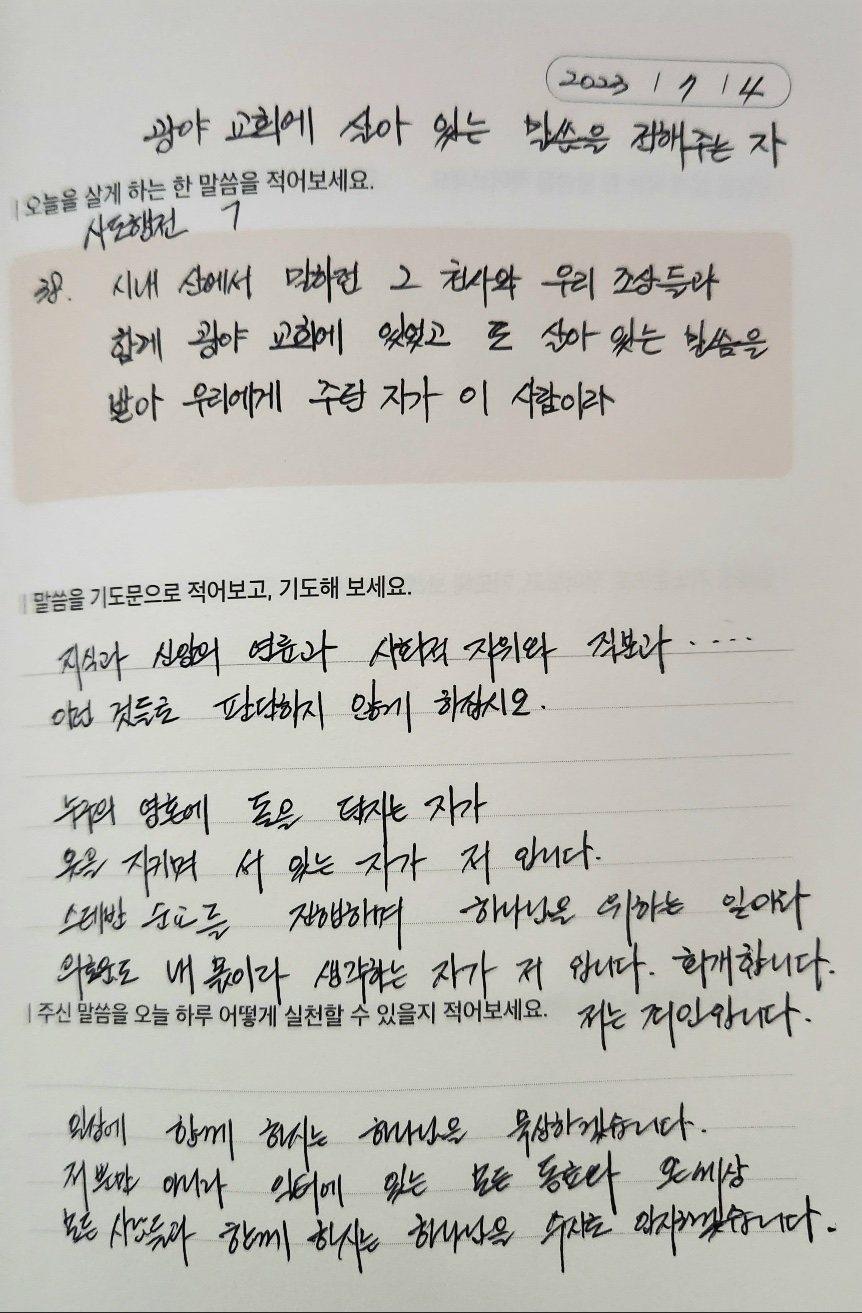 2023 / 7 / 4
광야 교회에 살아 있는 말씀을 전해주는 자
오늘을 살게 하는 한 말씀을 적어보세요.
사도행전 7
38. 시내 산에서 말하던 그 천사와 우리 조상들과
함께 광야 교회에 있었고 또 살아 있는 말씀을
받아 우리에게 주던 자가 이 사람이라
말씀을 기도문으로 적어보고, 기도해 보세요.
지식과 신앙의 연륜과 사회적 지위와 직분과 ....
이런 것들로 판단하지 않게 하십시오.
누구의 영혼에 돌을 던지는 자가
옷을 지키며 서 있는 자가 저 입니다.
스데반 순교를 진행하며 하나님을 위하는 일이라
의로움도 내 몫이라 생각하는 자가 저 입니다. 회개합니다.
저는 죄인입니다.
주신 말씀을 오늘 하루 어떻게 실천할 수 있을지 적어보세요.
일상에 함께 하시는 하나님을 묵상하겠습니다.
저 뿐만 아니라 일터에 있는 모든 동료와 온 세상
모든 사람들과 함께 하시는 하나님을 수시로 인지하겠습니다.